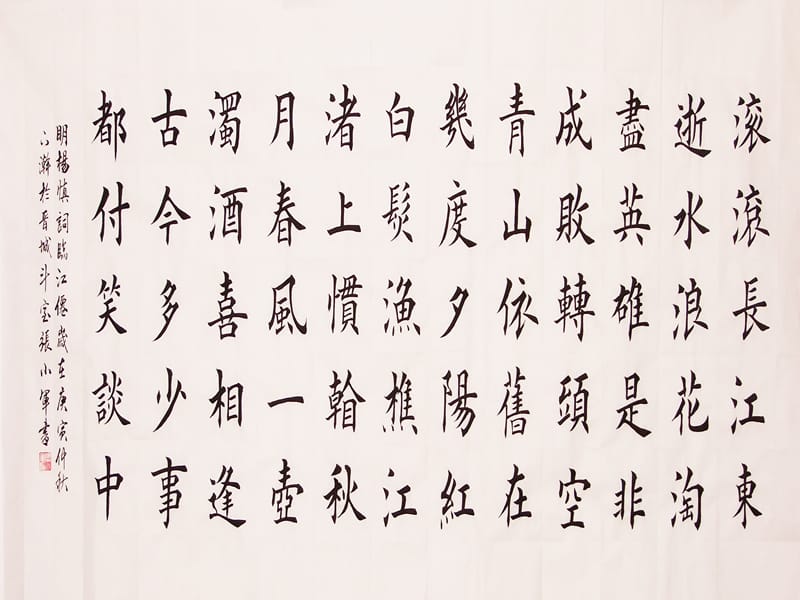 滚滚長江東
逝水浪花淘
盡英雄是非
成敗轉頭空
青山依舊在
幾度夕陽紅
白髮漁樵江
渚上慣看秋
月春風一壺
濁酒喜相逢
古今多少事
都付笑談中
明楊慎詞臨江僊歲在庚寅仲秋
下澣於晉城斗室張小軍書